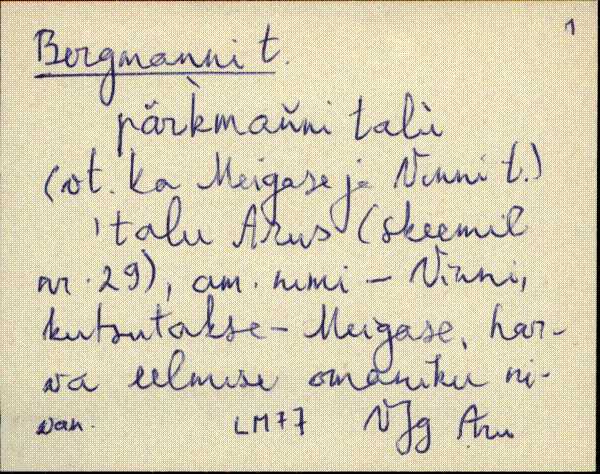 1
Bergmanni t.
pär̆kmaňni talù
(vt. ka Meigase ja Vinni t.)
'talu Arus (skeemil
nr. 29), am. nimi – Vinni,
kutsutakse – Meigase, har-
va eelmise omaniku ni-
LM77 VJg Aru